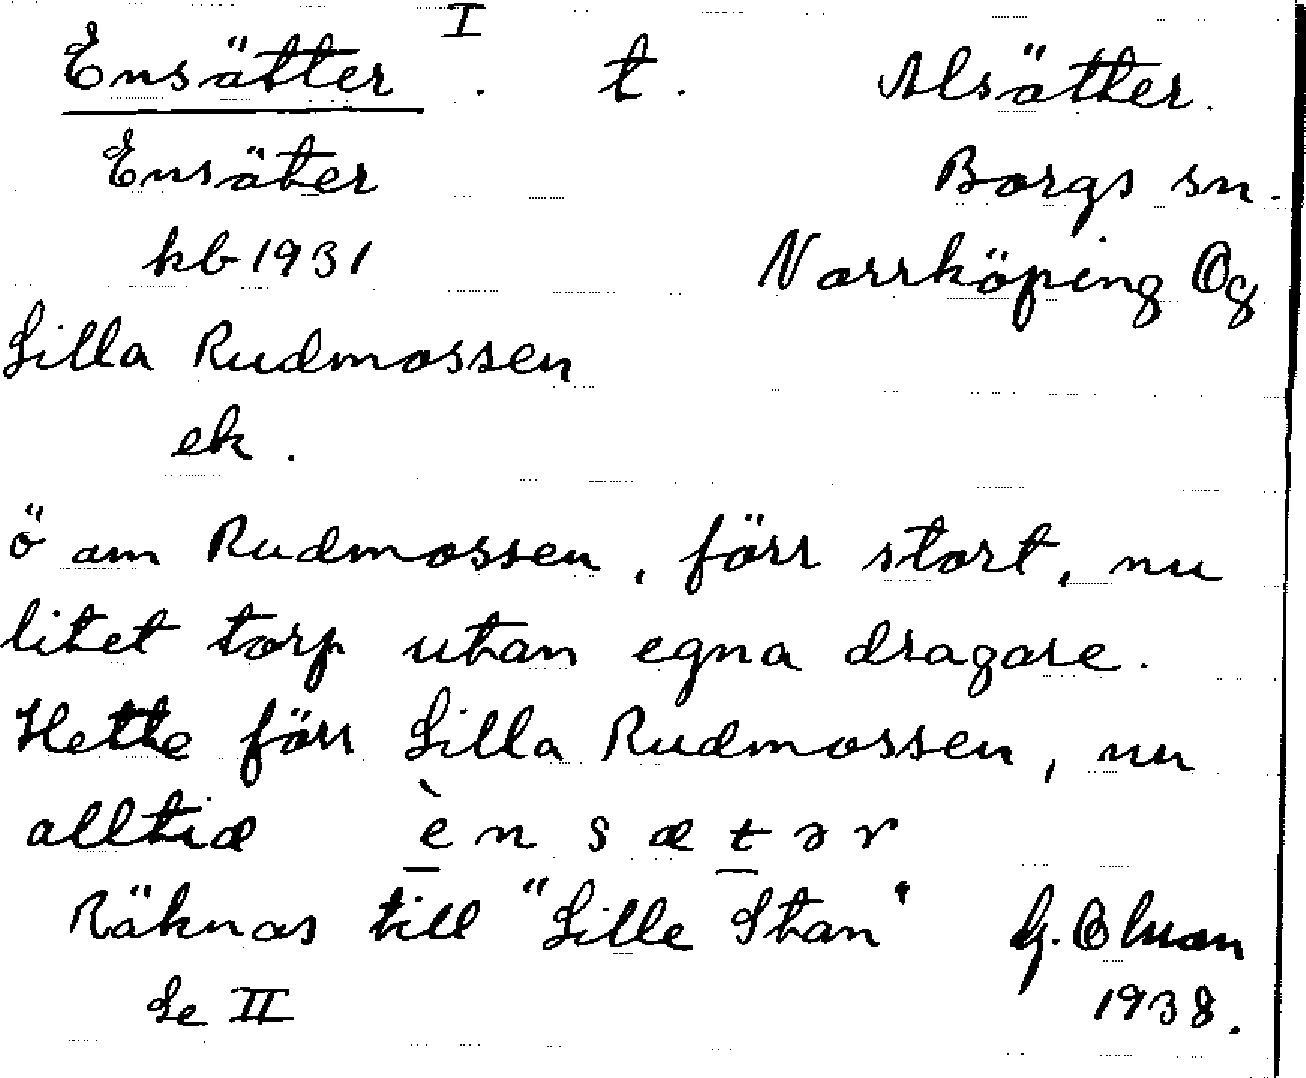 I
Ensätter . t. Alsätter.
Ensäter Borgs sn.
kb 1931 Norrköping Ög
Lilla Rudmossen
ek.
ö om Rudmossen, förr stort, nu
litet torp utan egna dragare.
Hette förr Lilla Rudmossen, nu
alltid è n s æ t ə r
Räknas till "Lille Stan" G. Olsson
Se II 1938.